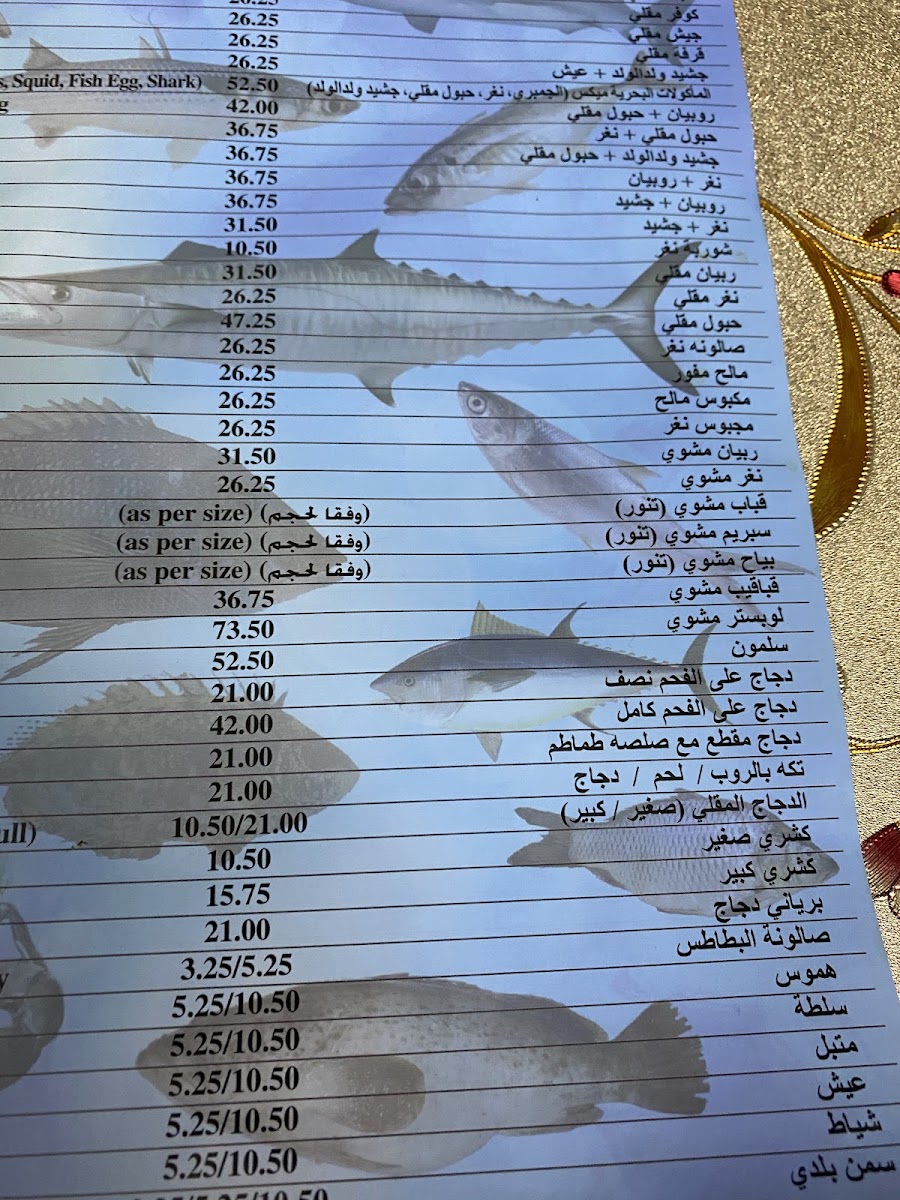 26.25 كوفر مقلي
26.25 جيش مقلي
26.25 قرفة مقلي
26.25 جشيد ولدالولد + عيش
Squid, Fish Egg, Shark) 52.50 المأكولات البحرية ميكس (الجمبري، نغر، حبول مقلي، جشيد ولدالولد)
42.00 روبيان + حبول مقلي
36.75 حبول مقلي + نغر
36.75 جشيد ولدالولد + حبول مقلي
36.75 نغر + روبيان
36.75 روبيان + جشيد
31.50 نغر + جشيد
10.50 شوربة نغر
31.50 ربيان مقلي
26.25 نغر مقلي
47.25 حبول مقلي
26.25 صالونه نغر
26.25 مالح مفور
26.25 مكبوس مالح
26.25 مجبوس نغر
31.50 ربيان مشوي
26.25 نغر مشوي
(as per size) (وفقا لحجم) قباب مشوي (تنور)
(as per size) (وفقا لحجم) سبريم مشوي (تنور)
(as per size) (وفقا لحجم) بياح مشوي (تنور)
36.75 قباقيب مشوي
73.50 لوبستر مشوي
52.50 سلمون
21.00 دجاج على الفحم نصف
42.00 دجاج على الفحم كامل
21.00 دجاج مقطع مع صلصه طماطم
21.00 تكه بالروب / لحم / دجاج
10.50/21.00 الدجاج المقلي (صغير / كبير)
10.50 كشري صغير
15.75 كشري كبير
21.00 برياني دجاج
3.25/5.25 صالونة البطاطس
5.25/10.50 هموس
5.25/10.50 سلطة
5.25/10.50 متبل
5.25/10.50 عيش
5.25/10.50 شياط
سمن بلدي